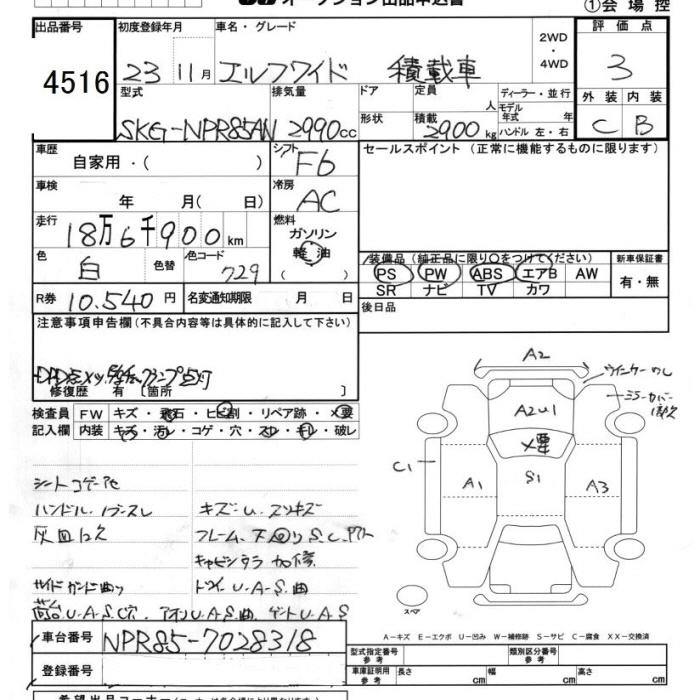 ①会場控
出品番号 初度登録年月 車名・グレード 評価点
4516 23 11月 エルフワイド 積載車 2WD・4WD 3
型式 排気量 ドア 定員 人 ディーラー・並行 外装 内装
モデル年式 年式
SKG-NPR85AN 2990cc 形状 積載 2900kg ハンドル 左・右 C B
車歴 シフト F6 セールスポイント (正常に機能するものに限ります)
自家用・( )
車検 年 月( 日) 冷房 AC
走行 18万6千900km 燃料 ガソリン
軽油
色 白 色替 色コード 729 ( )
装備品 (純正品に限り○をつけてください) 新車保証書
PS PW ABS エアB AW 有・無
SR ナビ TV カワ
R券 10.540円 名変通知期限 月 日 後日品
注意事項申告欄 (不具合内容等は具体的に記入して下さい)
修復歴 有 [箇所 ]
検査員 FW キズ・飛石・ヒビ割・リペア跡・×要
記入欄 内装 キズ・汚レ・コゲ・穴・スレ・モレ・破レ
A2
ウインカー
ミラーカバー
A2U1
×要
C1 A1 S1 A3
スペア
シートコゲ
ハンドル
キズ・U
灰皿
フレーム、下回りS.C
U・A・S曲
サイドガード曲り
荷台U・A・S穴 アオリU・A・S曲 ゲートU・A・S
A-キズ E-エクボ U-凹み W-補修跡 S-サビ C-腐食 XX-交換済
車台番号 NPR85-7028318
登録番号
型式指定番号 参考 類別区分番号 参考
車庫証明用 参考 長さ cm 幅 cm 高さ cm